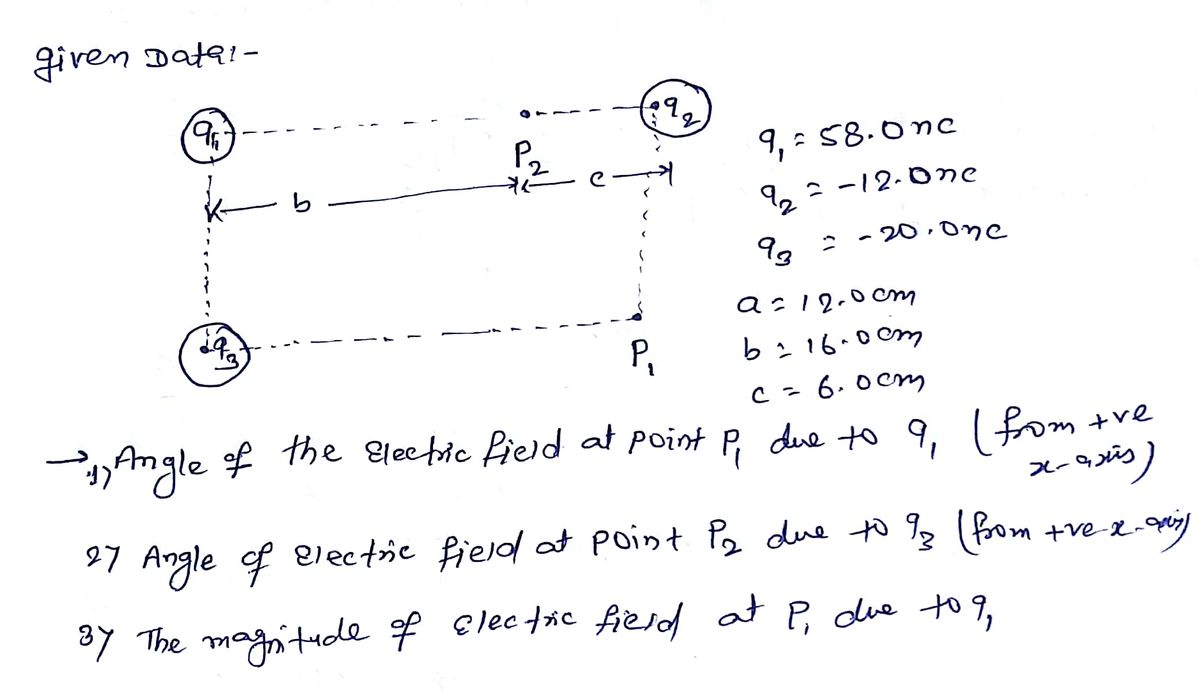 given Data:-
q1
q2
P2
b
c
q3
P1
q1 = 58.0nc
q2 = -12.0nc
q3 = -20.0nc
a = 12.0cm
b = 16.0cm
c = 6.0cm
→ 1) Angle of the Electric field at point P1 due to q1 (from +ve
x-axis)
2) Angle of Electric field at point P2 due to q3 (from +ve x-axis)
3) The magnitude of Electric field at P1 due to q1